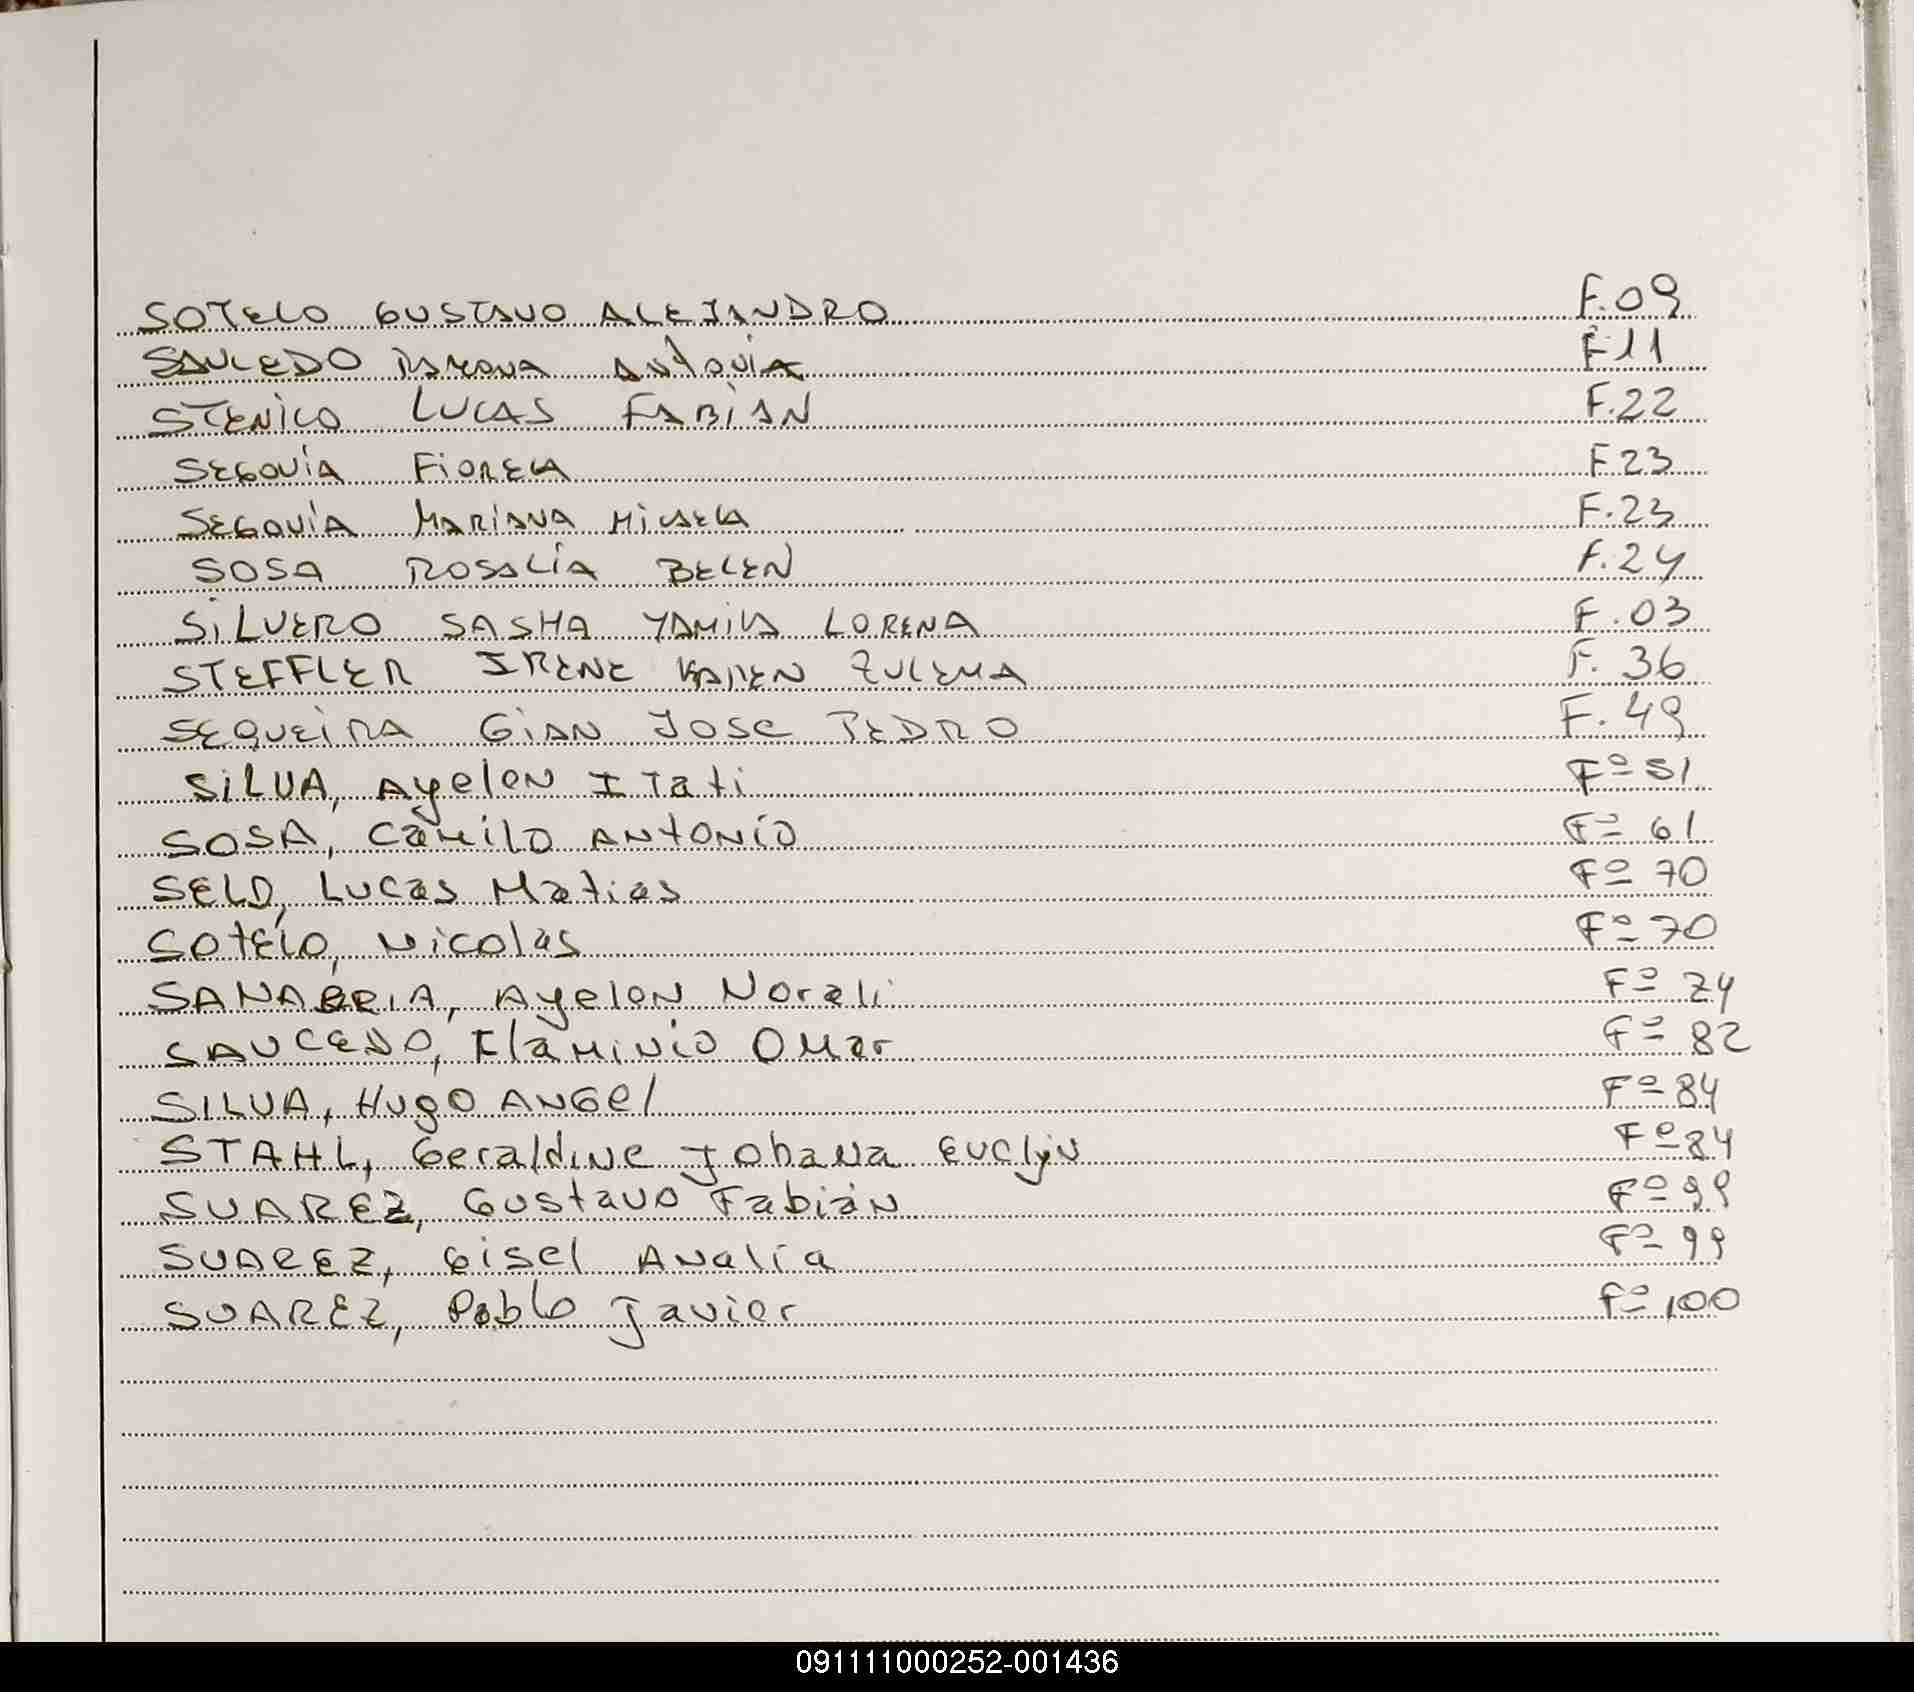 SOTELO GUSTAVO ALEJANDRO F.09
SAUCEDO RAMONA ANTONIA F.11
STENICO LUCAS FABIAN F.22
SEGOVIA FIORELA F.23
SEGOVIA MARIANA MICAELA F.23
SOSA ROSALIA BELEN F.24
SILVERO SASHA YAMILA LORENA F.03
STEFFLER IRENE KAREN ZULEMA F. 36
SEQUEIRA GIAN JOSE PEDRO F. 49
SILVA, Ayelen Itati Fº 51
SOSA, Camilo ANTONIO Fº 61
SELD, Lucas Matias Fº 70
SOTELO, Nicolás Fº 70
SANABRIA, Ayelen Norali Fº 74
SAUCEDO, Flaminio Omar Fº 82
SILVA, Hugo ANGel Fº 84
STAHL, Geraldine Johana Evelyn Fº 84
SUAREZ, Gustavo Fabián Fº 99
SUAREZ, Gisel Analía Fº 99
SUAREZ, Pablo Javier Fº 100
091111000252-001436